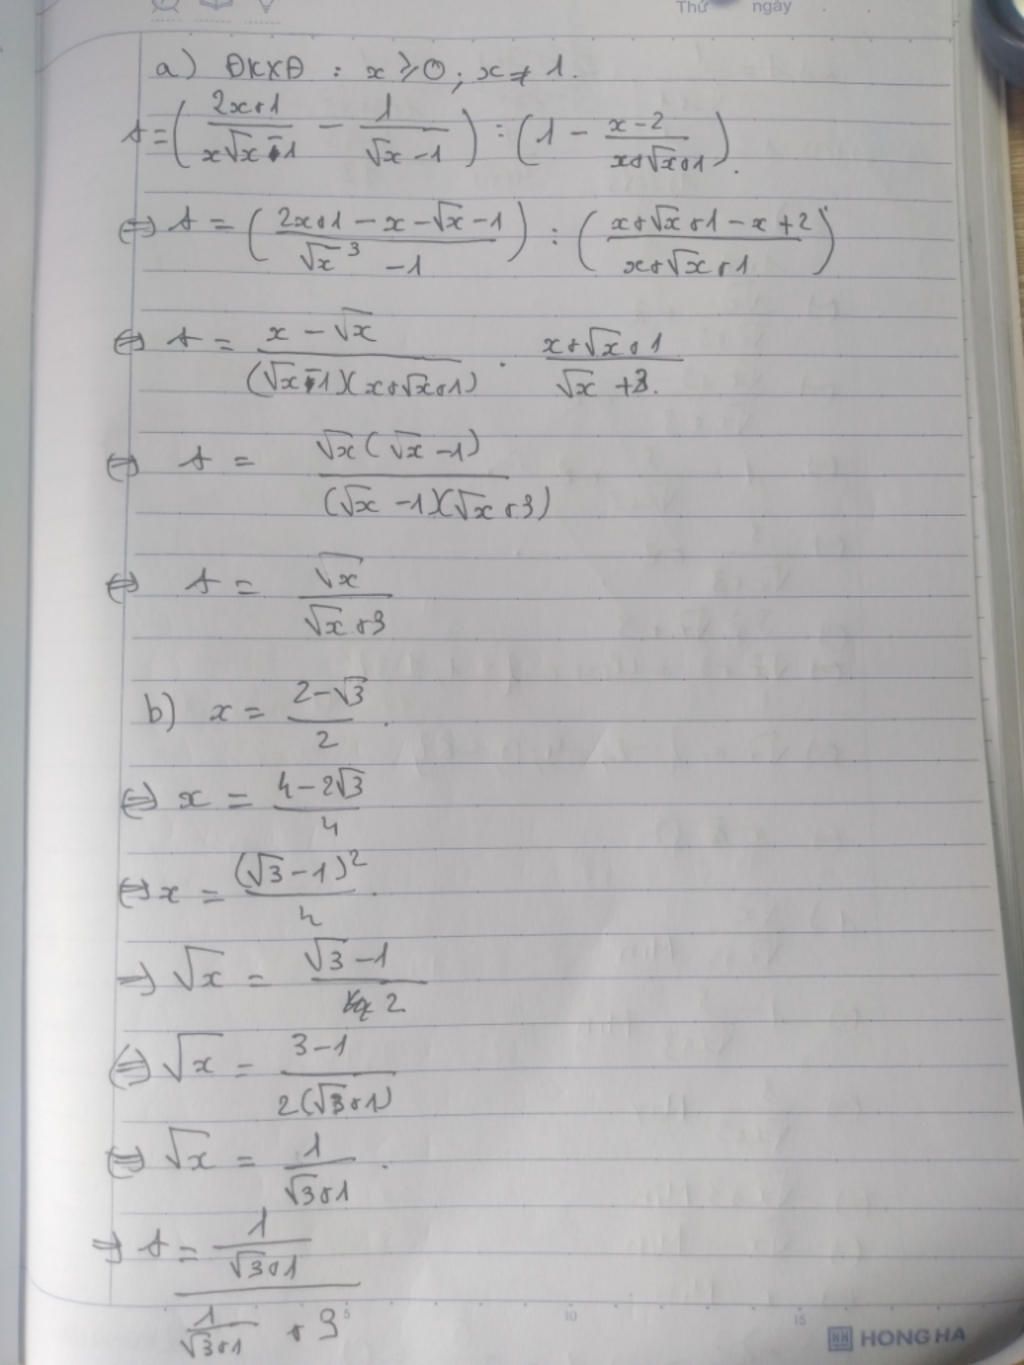 Thứ ngày
a) ĐKXĐ : x ≥ 0 ; x ≠ 1.
A = ( (2x+1)/(x√x - 1) - 1/(√x - 1) ) : ( 1 - (x-2)/(x+√x+1) ).
⇔ A = ( (2x+1 - x - √x - 1)/(√x³ - 1) ) : ( (x+√x+1 - x + 2)/(x+√x+1) )
⇔ A = (x - √x)/((√x - 1)(x+√x+1)) · (x+√x+1)/(√x + 3).
⇔ A = (√x(√x - 1))/((√x - 1)(√x + 3))
⇔ A = √x/(√x + 3)
b) x = (2-√3)/2 .
⇔ x = (4-2√3)/4
⇔ x = (√3-1)²/4 .
⇒ √x = (√3-1)/2
⇔ √x = (3-1)/(2(√3+1))
⇔ √x = 1/(√3+1) .
⇒ A = (1/(√3+1))/(1/(√3+1) + 3)
5 10 15
HONG HA